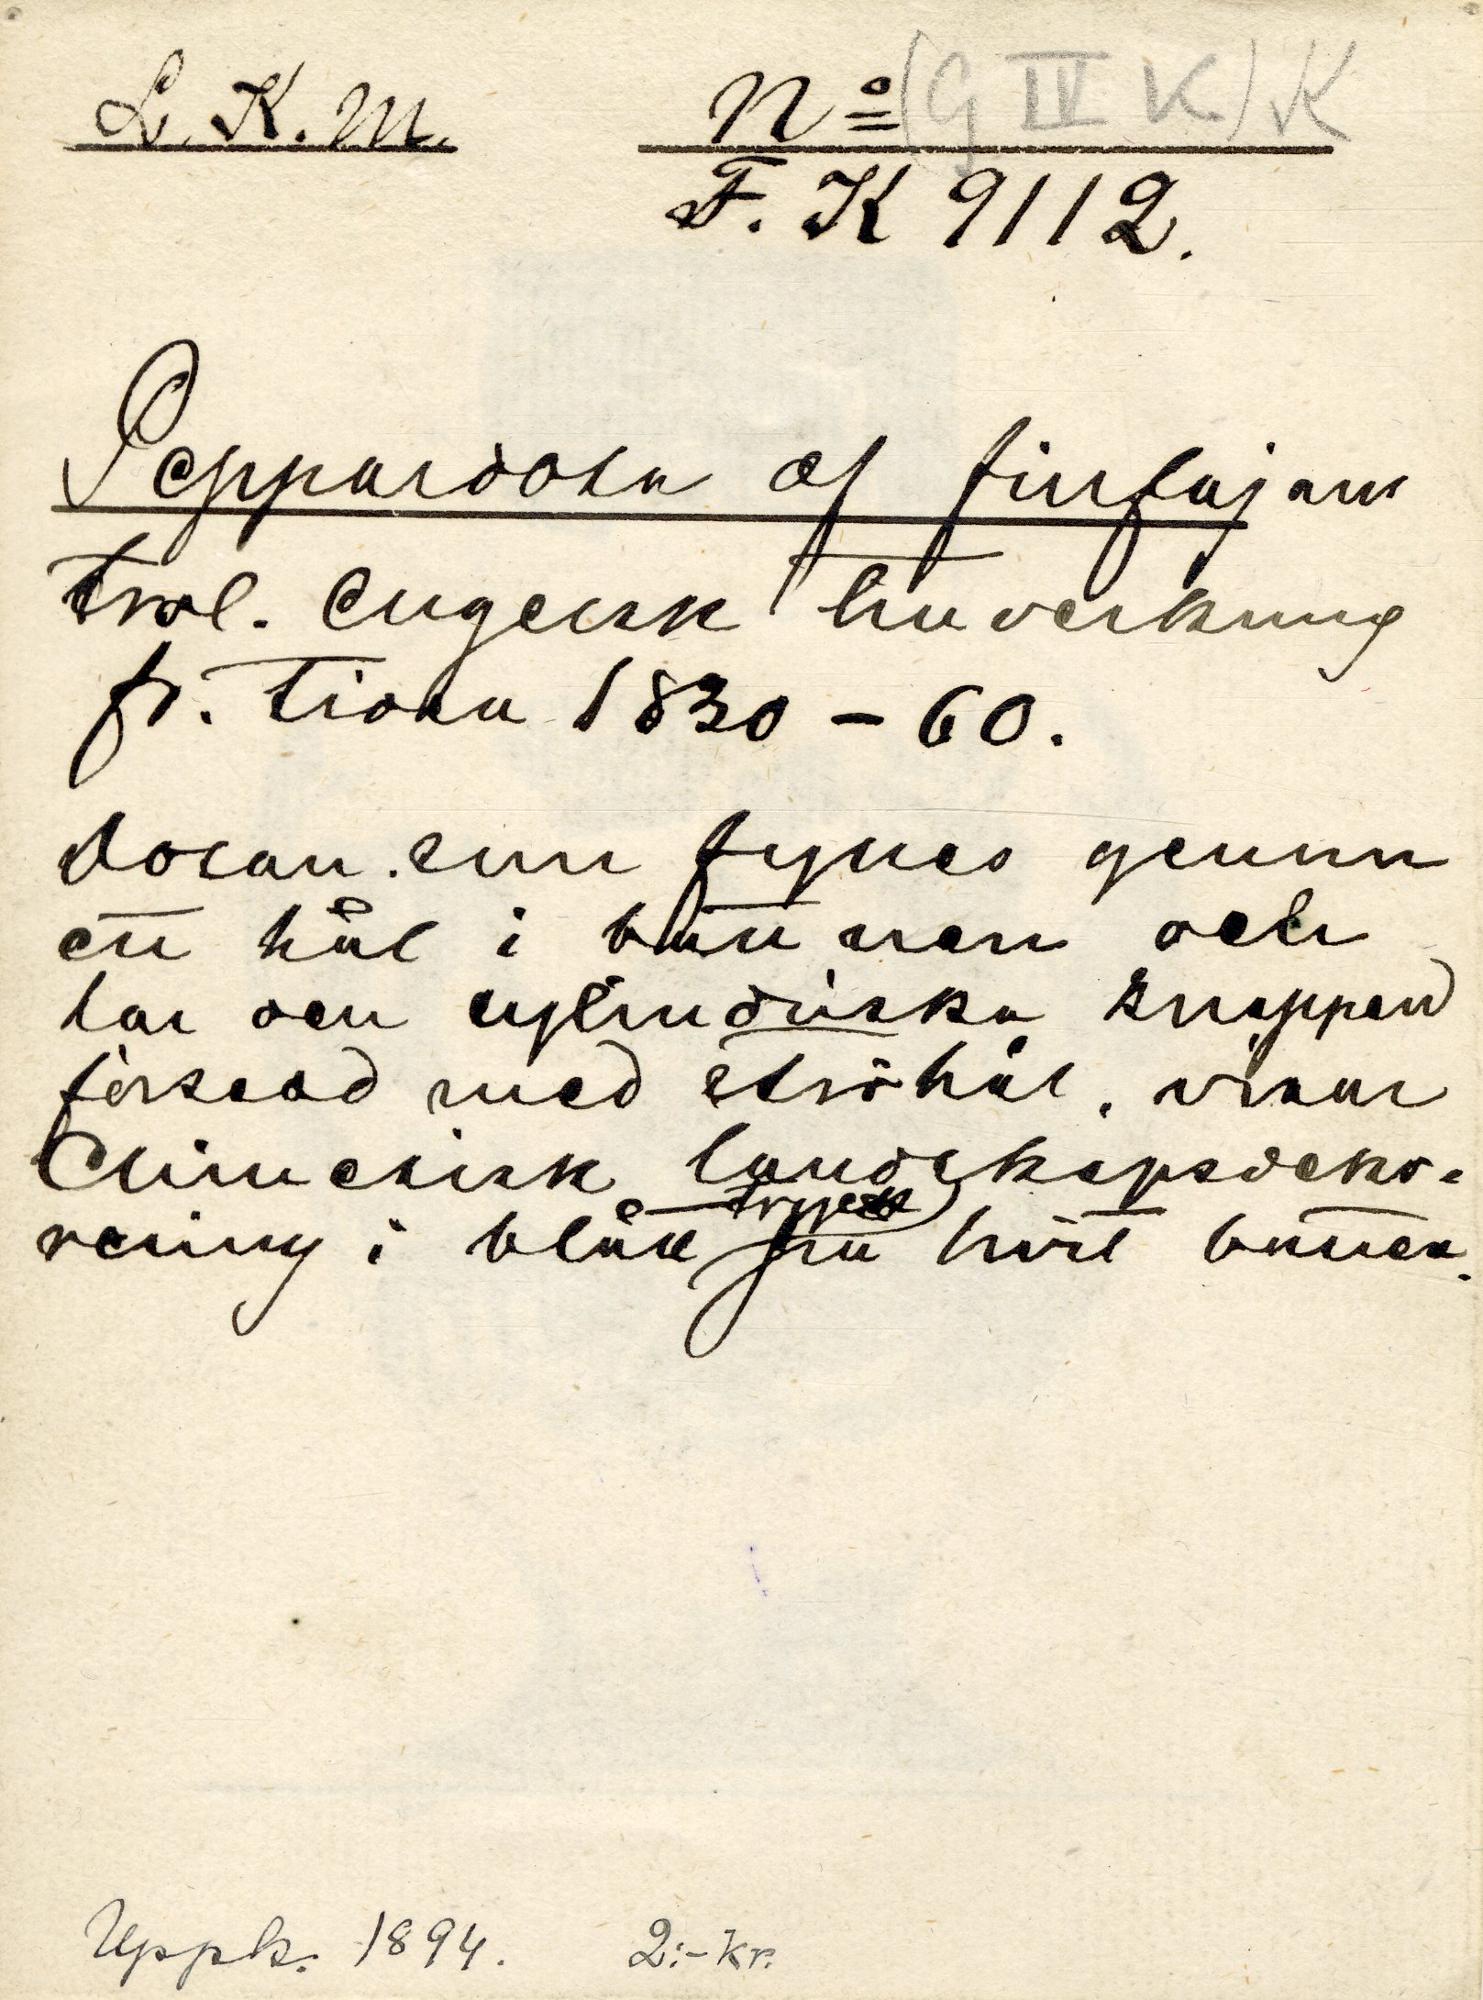 L. K. M.
No (G IV K) K
F. K 9112.
Peppardosa af finfajans
trol. engelsk tillverkning
fr. tiden 1830 – 60.
Dosan som fylles genom
ett hål i bottnen och
har den cylindriska knoppen
försedd med ströhål, visar
Chinesisk landskapsdeko-
rering i blått tryck på hvit botten.
Uppk. 1894. 2:- kr.